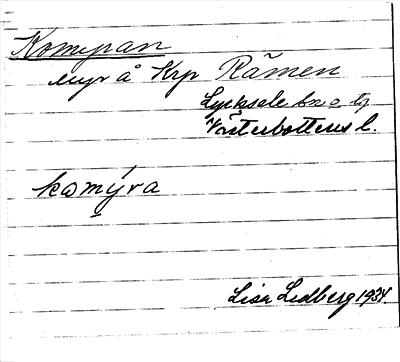 Komyran
myr å Krp Råmen
Lycksele sn o tg
Västerbottens l.
komýra
Lisa Lidberg 1934.